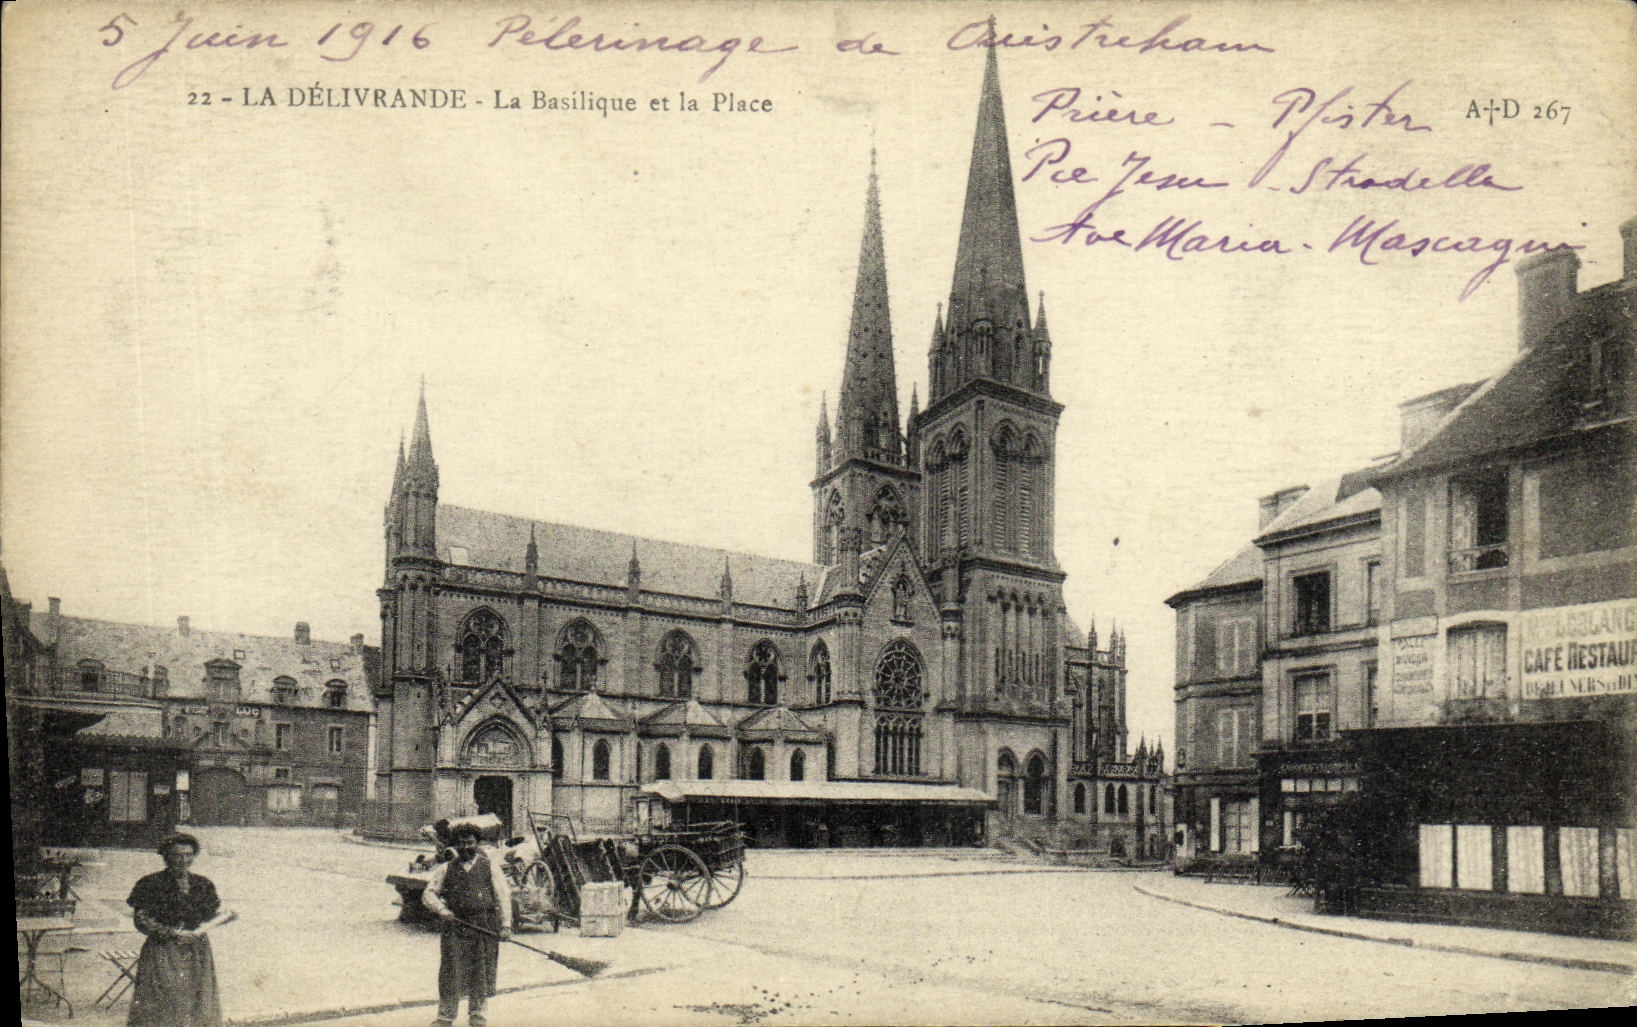 5 Juin 1916 Pélerinage de Ouistreham
22 - LA DÉLIVRANDE - La Basilique et la Place
Prière - Pfister
A†D 267
Pie Jesu - Stradella
Ave Maria - Mascagni
LEBLANC
CAFÉ RESTAUR
DEJEUNERS et DIN